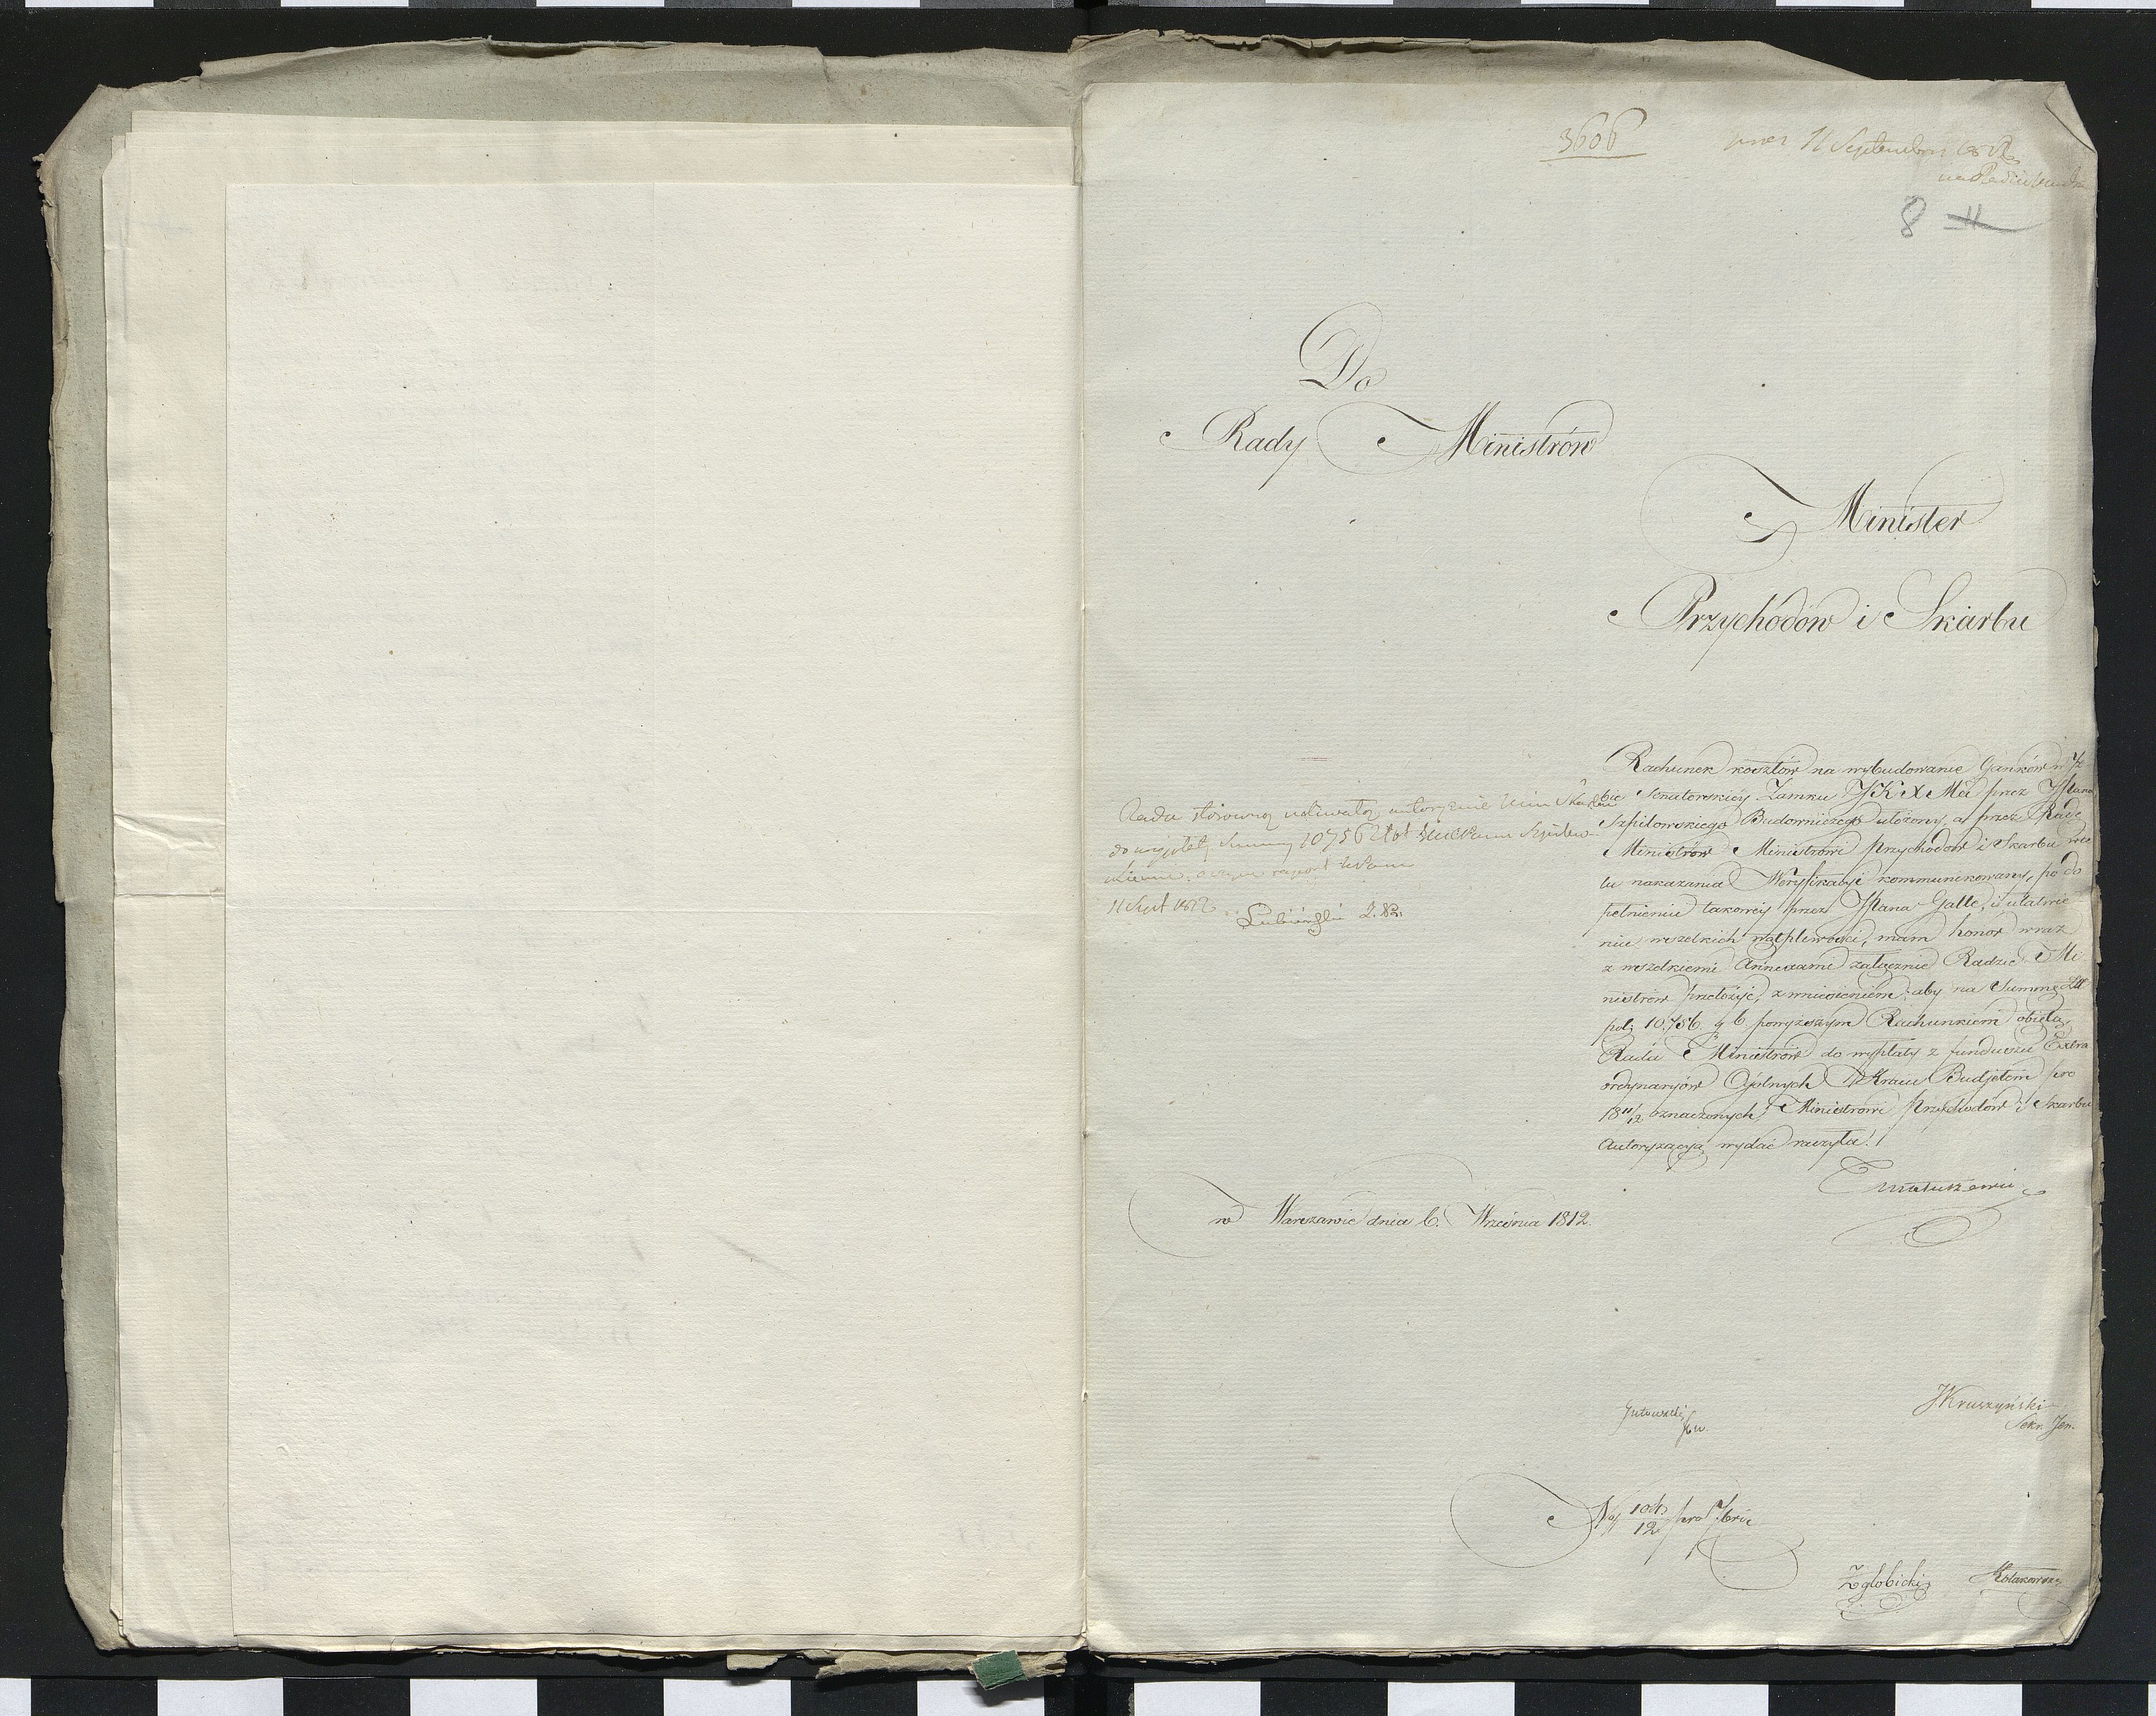 3606
11 Septembris
8 11
Do
Rady Ministrów
Minister
Przychodów i Skarbu
Rachunek kosztów na wybudowanie Ganków w Iz-
bie Senatorskiéy Zamku JKX Mci przez JPana
Szpilowskiego Budowniczego ułożony, a przez Radę
Ministrów Ministrowi Przychodów i Skarbu w ce
lu nakazania Weryfikacyi kommunikowany, po do
pełnieniu takowéy przez JPana Galle, i ułatwie
niu wszelkich wątpliwości, mam honor wraz
z wszelkiemi Annexami załącznie Radzie Mi
nistrów przełożyć, z wniesieniem: aby na Summę Złł
pol: 10,756 g 6 powyższym Rachunkiem objętą
Rada Ministrów do wypłaty z funduszu Extra
ordynaryów Ogólnych W Kraiu Budjetem pro
18 11/12 oznaczonych, Ministrowi Przychodów i Skarbu
Autoryzacyą wydać raczyła!
Matuszewic
Rada stosowną uchwałą autoryzuie Min Skarbu
do wypłaty Summy 10756 Złot
raport
11 Sept 1812
Lubieński
w Warszawie dnia 6. Września 1812.
JKruszyński
Sekr. Jen.
No 104/12 pro 7brii
Zgłobicki